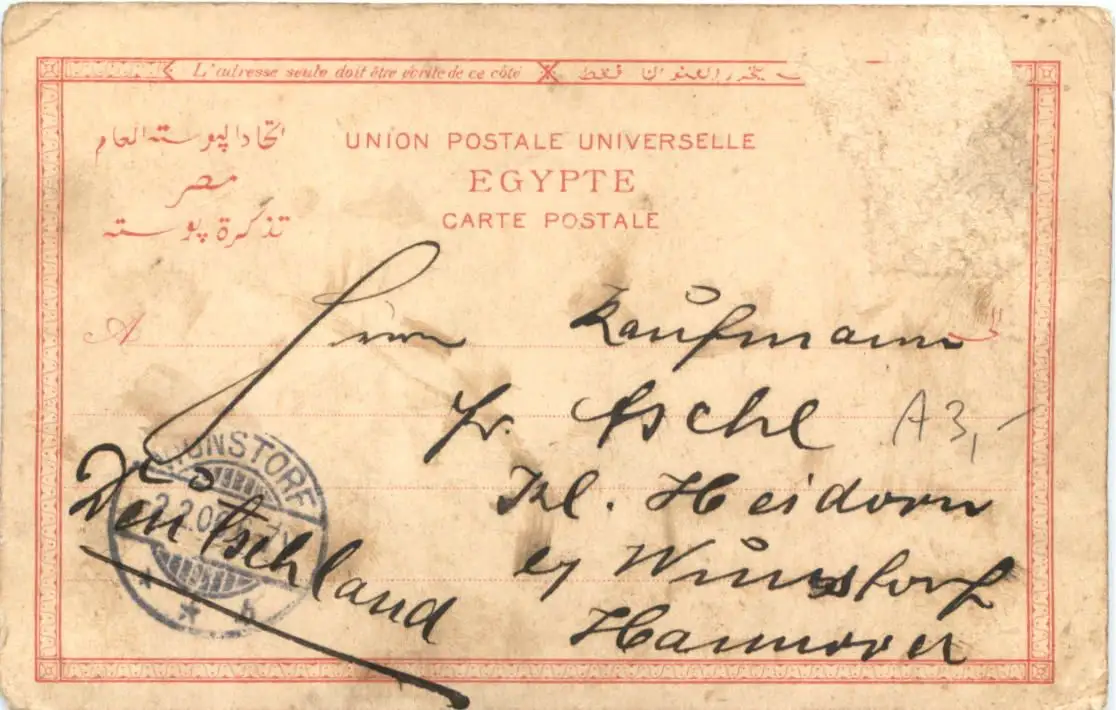 L'adresse seule doit être écrite de ce côté
يحرر العنوان فقط
اتحاد البوسته العام
مصر
تذكرة بوسته
UNION POSTALE UNIVERSELLE
EGYPTE
CARTE POSTALE
A
الى
Herrn Kaufmann
Fr.
A3,-
Kl. Heidorn
Wunstorf
Hannover
Deutschland
WUNSTORF